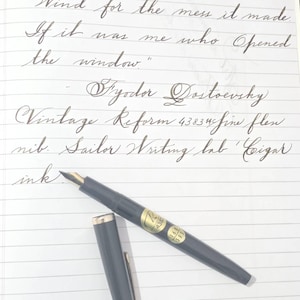 Wind for the mess it made
If it was me who Opened
the window"
Fyodor Dostoevsky
Vintage Reform 4383 fine flex
nib. Sailor Writing lab 'Cigar
ink